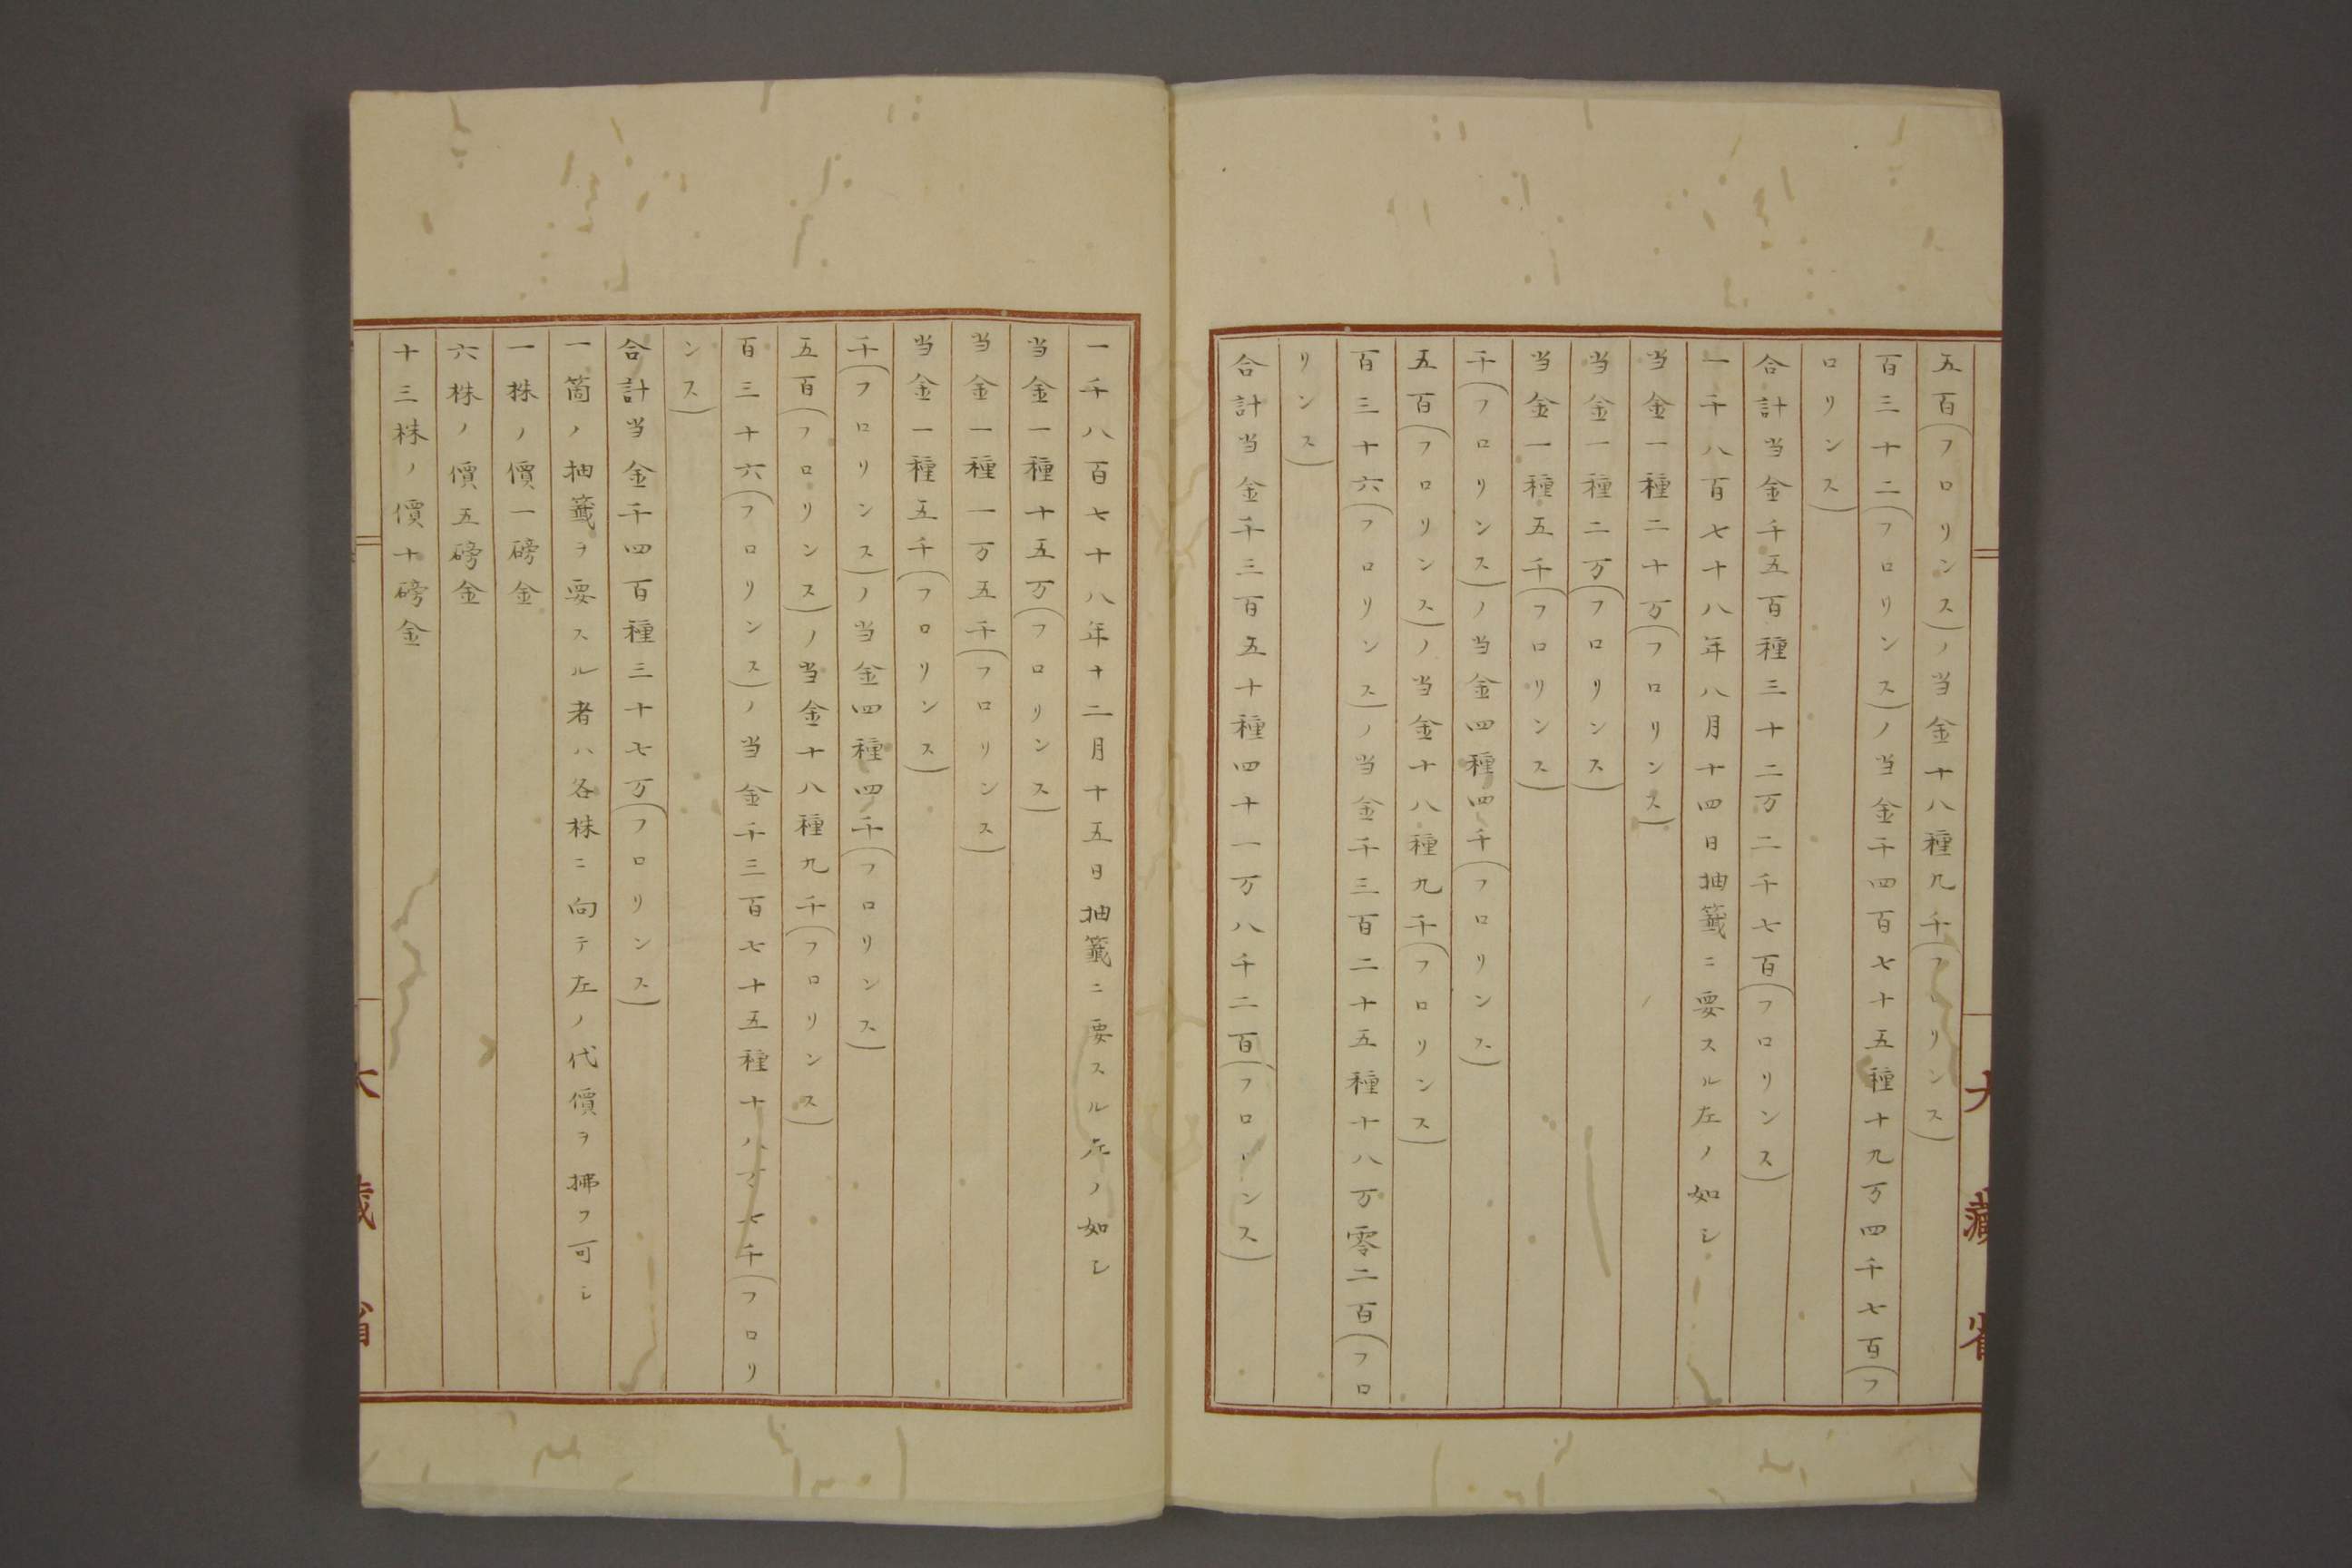 五百(フロリンス)ノ当金十八種九千(フロリンス)
百三十二(フロリンス)ノ当金千四百七十五種十九万四千七百(フ
ロリンス)
合計当金千五百種三十二万二千七百(フロリンス)
一千八百七十八年八月十四日抽籤ニ要スル左ノ如シ
当金一種二十万(フロリンス)
当金一種二万(フロリンス)
当金一種五千(フロリンス)
千(フロリンス)ノ当金四種四千(フロリンス)
五百(フロリンス)ノ当金十八種九千(フロリンス)
百三十六(フロリンス)ノ当金千三百二十五種十八万零二百(フロ
リンス)
合計当金千三百五十種四十一万八千二百(フロリンス)
大藏省
一千八百七十八年十二月十五日抽籤ニ要スル左ノ如シ
当金一種十五万(フロリンス)
当金一種一万五千(フロリンス)
当金一種五千(フロリンス)
千(フロリンス)ノ当金四種四千(フロリンス)
五百(フロリンス)ノ当金十八種九千(フロリンス)
百三十六(フロリンス)ノ当金千三百七十五種十八万七千(フロリ
ンス)
合計当金千四百種三十七万(フロリンス)
一箇ノ抽籤ヲ要スル者ハ各株ニ向テ左ノ代價ヲ拂フ可シ
一株ノ價一磅金
六株ノ價五磅金
十三株ノ價十磅金
大藏省